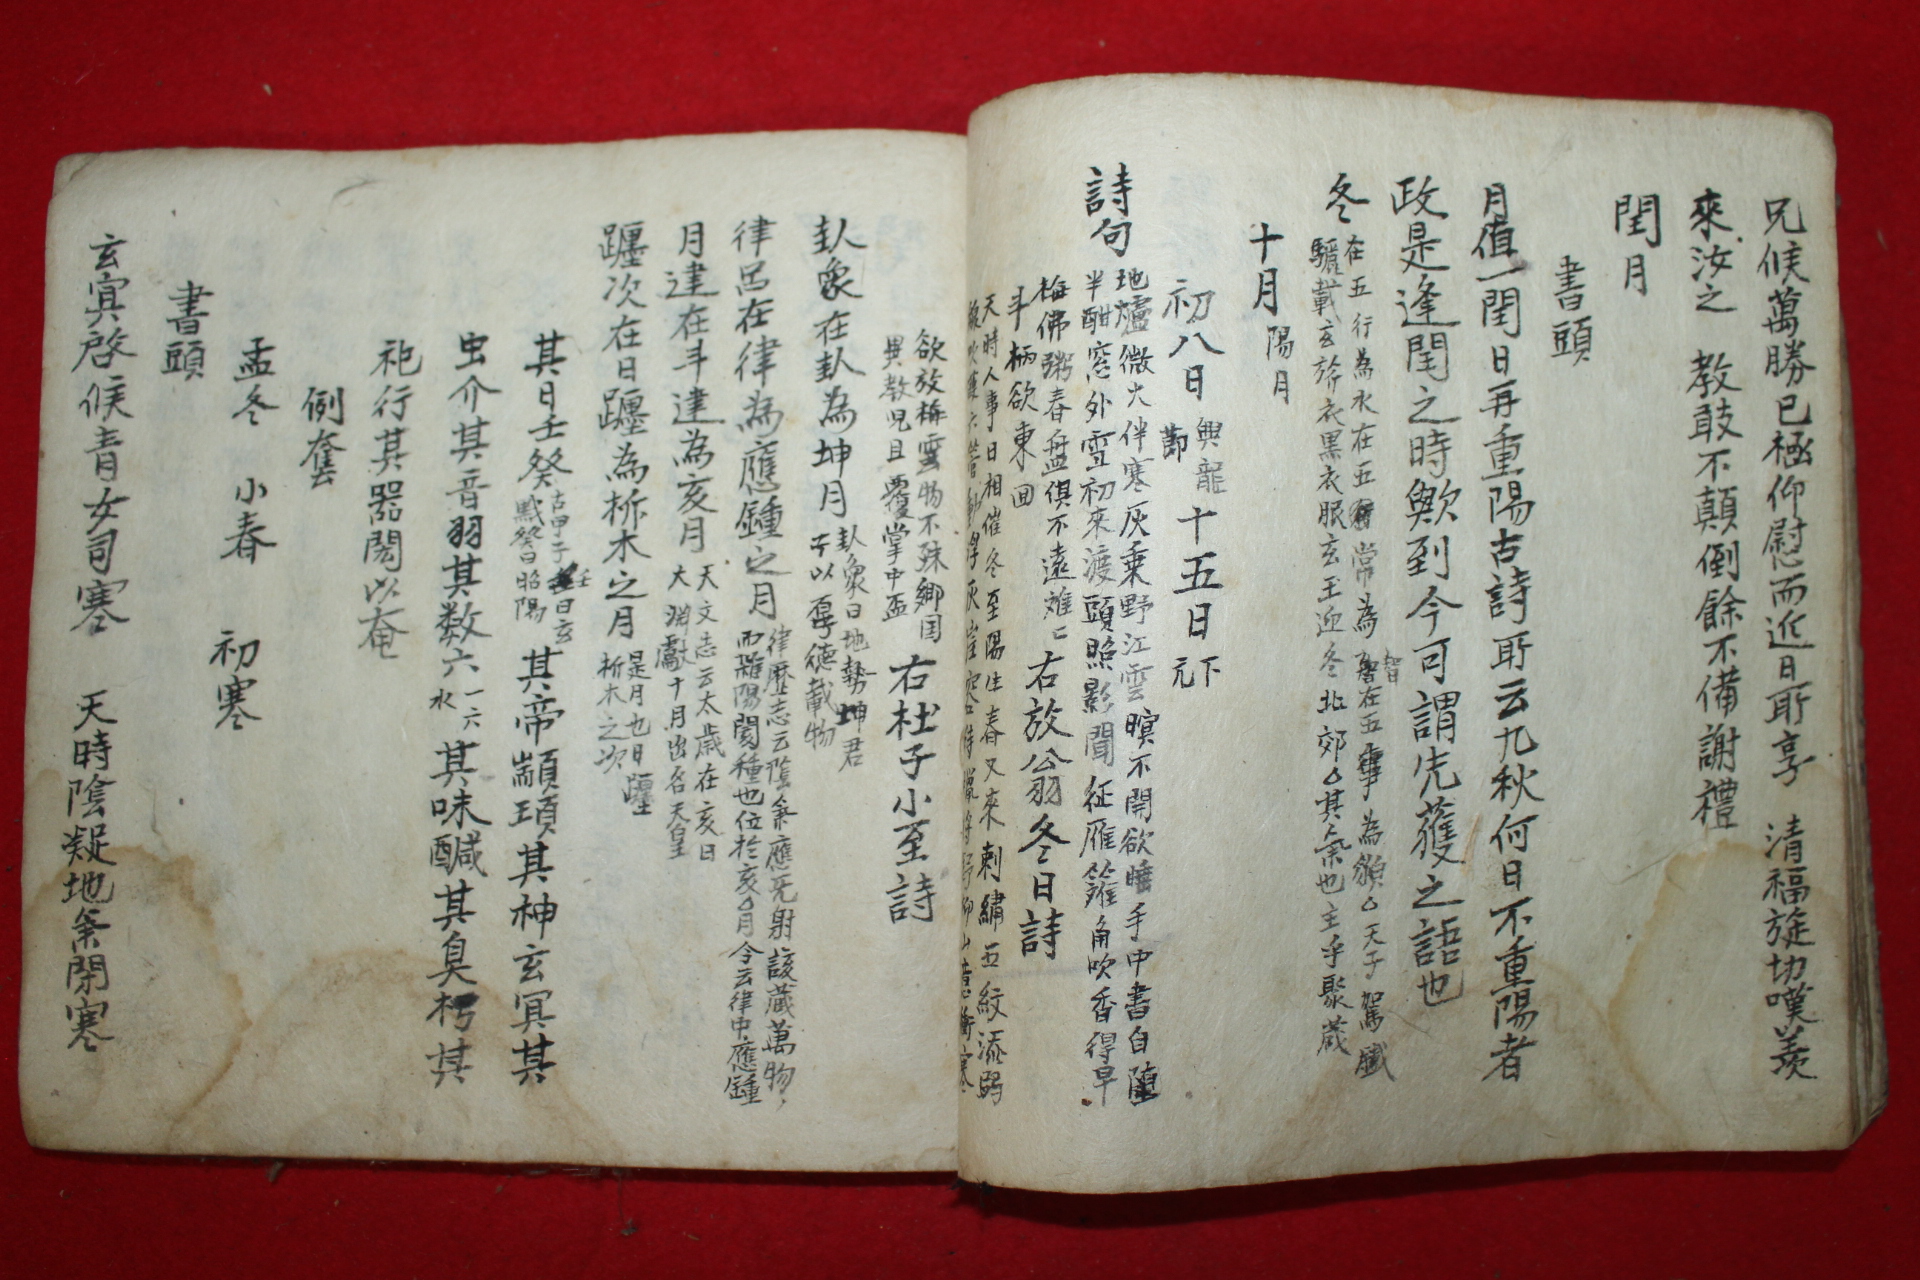 兄候萬勝已極仰慰而近日所享 清福旋切嘆羨
來汝之 教敢不顛倒餘不備謝禮
閏月
書頭
月値一閏日再重陽古詩所云九秋何日不重陽者
政是逢閏之時歟到今可謂先蒦之語也
冬
在五行為水在五 常為智在五事為 天子駕
驪載玄旂衣黑衣服玄玉迎冬北郊 其氣也主乎聚藏
十月 陽月
初八日 興龍節 十五日 下元
詩句
地爐微火伴寒灰乗野江雲暝不開欲睡手中書自墮
半酣窓外雪初來渡頭照影聞征雁籬角吹香得早
梅佛粥春盘俱不遠難
斗柄欲東回
右放翁冬日詩
天時人事日相催冬至陽生春又來刺繡五紋添弱
線吹葭六管動浮灰岸容待臘將舒柳山意衝寒
欲放梅雲物不殊鄉国
異教兒且覆掌中盃
右杜子小至詩
卦象在卦為坤月
卦象曰地勢坤君
子以厚德載物
律呂在律為應鍾之月
律歷志云陰氣應旡射該蔵萬物
而雜陽閡種也位於亥 月令云律中應鍾
月建在斗建為亥月
天文志云太歲在亥曰
大渊獻十月出名天皇
躔次在日躔為析木之月
是月也日躔
析木之次
其日壬癸
古甲子壬曰玄
黓癸曰昭陽
其帝耑頁頊其神玄冥其
虫介其音羽其数六
一六
水
其味醎其臭朽其
祀行其器閎以奄
例套
孟冬 小春 初寒
書頭
玄冥啓候青女司寒 天時陰凝地氣閉寒